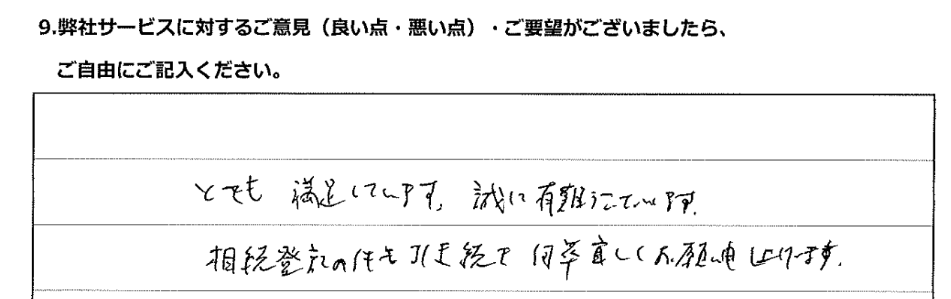 9.弊社サービスに対するご意見（良い点・悪い点）・ご要望がございましたら、
ご自由にご記入ください。
とても 満足しています。誠に有難うございます。
相続登記の件も引き続き何卒宜しくお願い申し上げます。